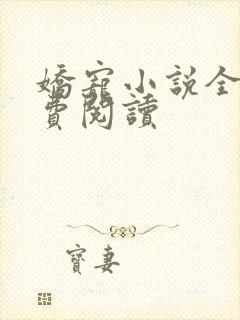 嬌寵小說全
費閱讀
寶妻